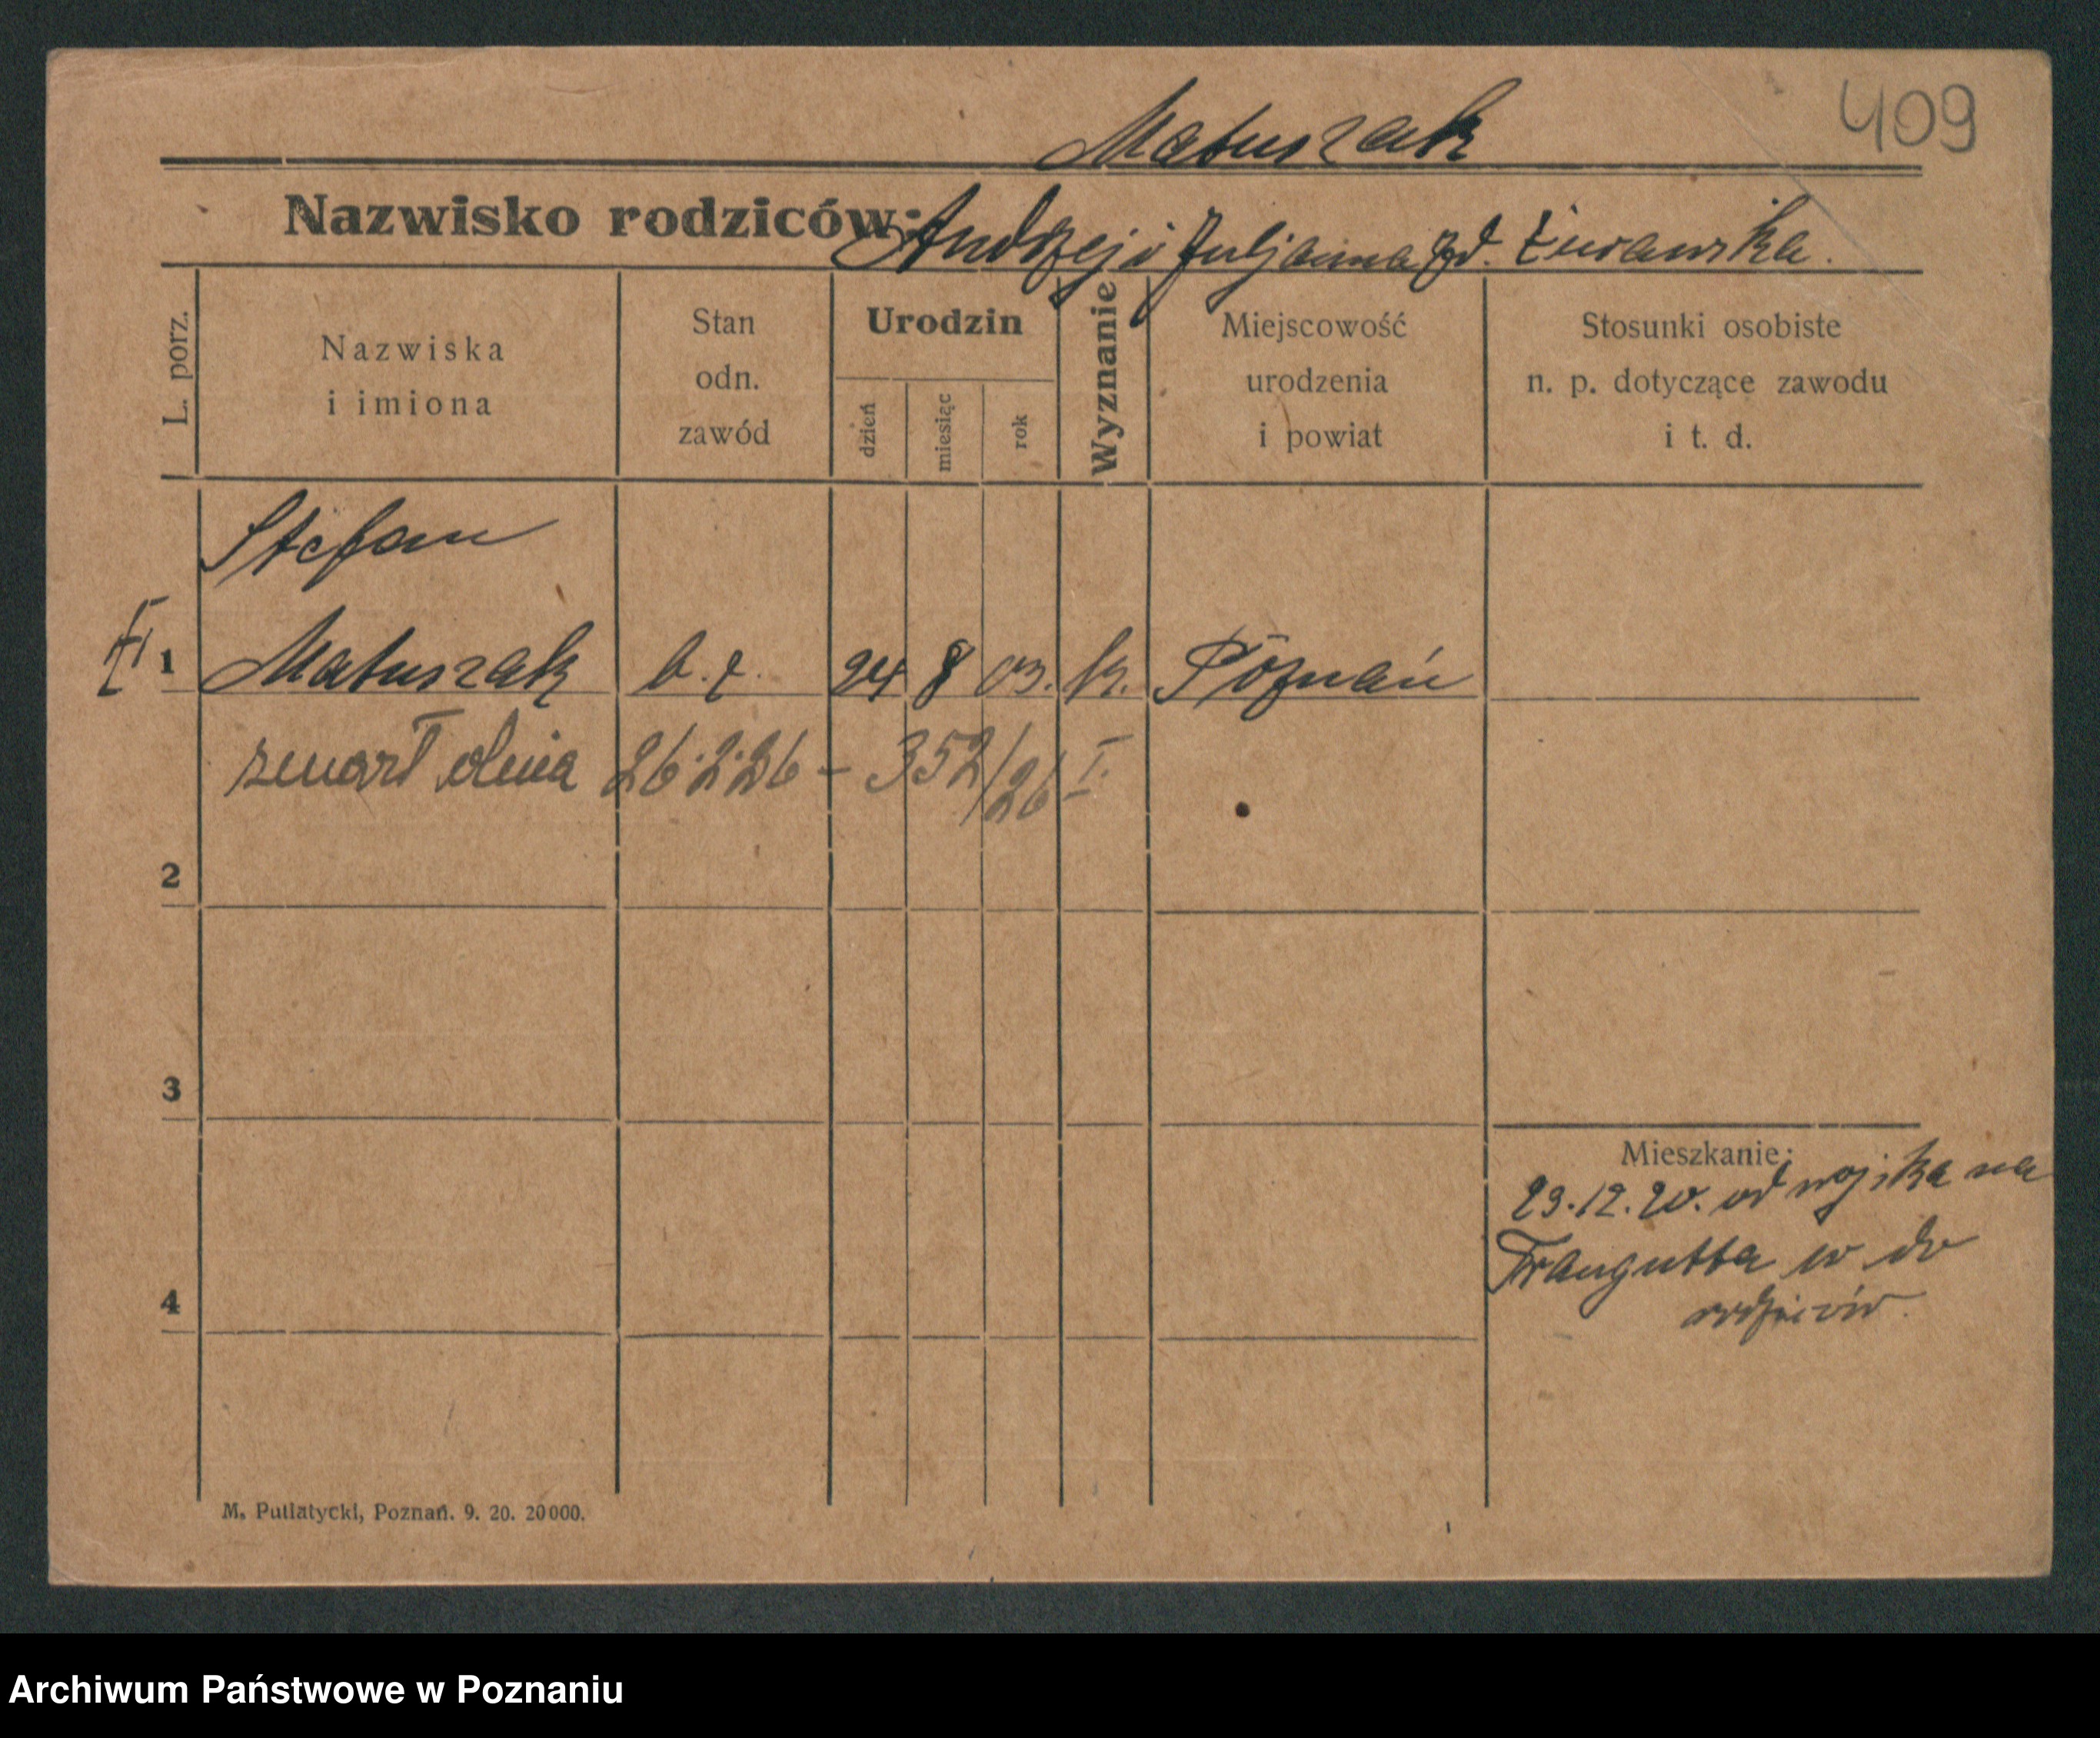 409
Matuszak
Nazwisko rodziców: Andrzej i Juljanna zd. Żurawska.
L. porz.
Nazwiska
i imiona
Stan
odn.
zawód
Urodzin
dzień
miesiąc
rok
Wyznanie
Miejscowość
urodzenia
i powiat
Stosunki osobiste
n. p. dotyczące zawodu
i t. d.
Stefan
1 Matuszak b. z. 24 8 03. k. Poznań
zmarł dnia 26.2.26 - 352/26 I.
2
3
Mieszkanie:
23.12.20. od wojska na
Traugutta do
4
rodziców.
M. Putiatycki, Poznań. 9. 20. 20000.
Archiwum Państwowe w Poznaniu